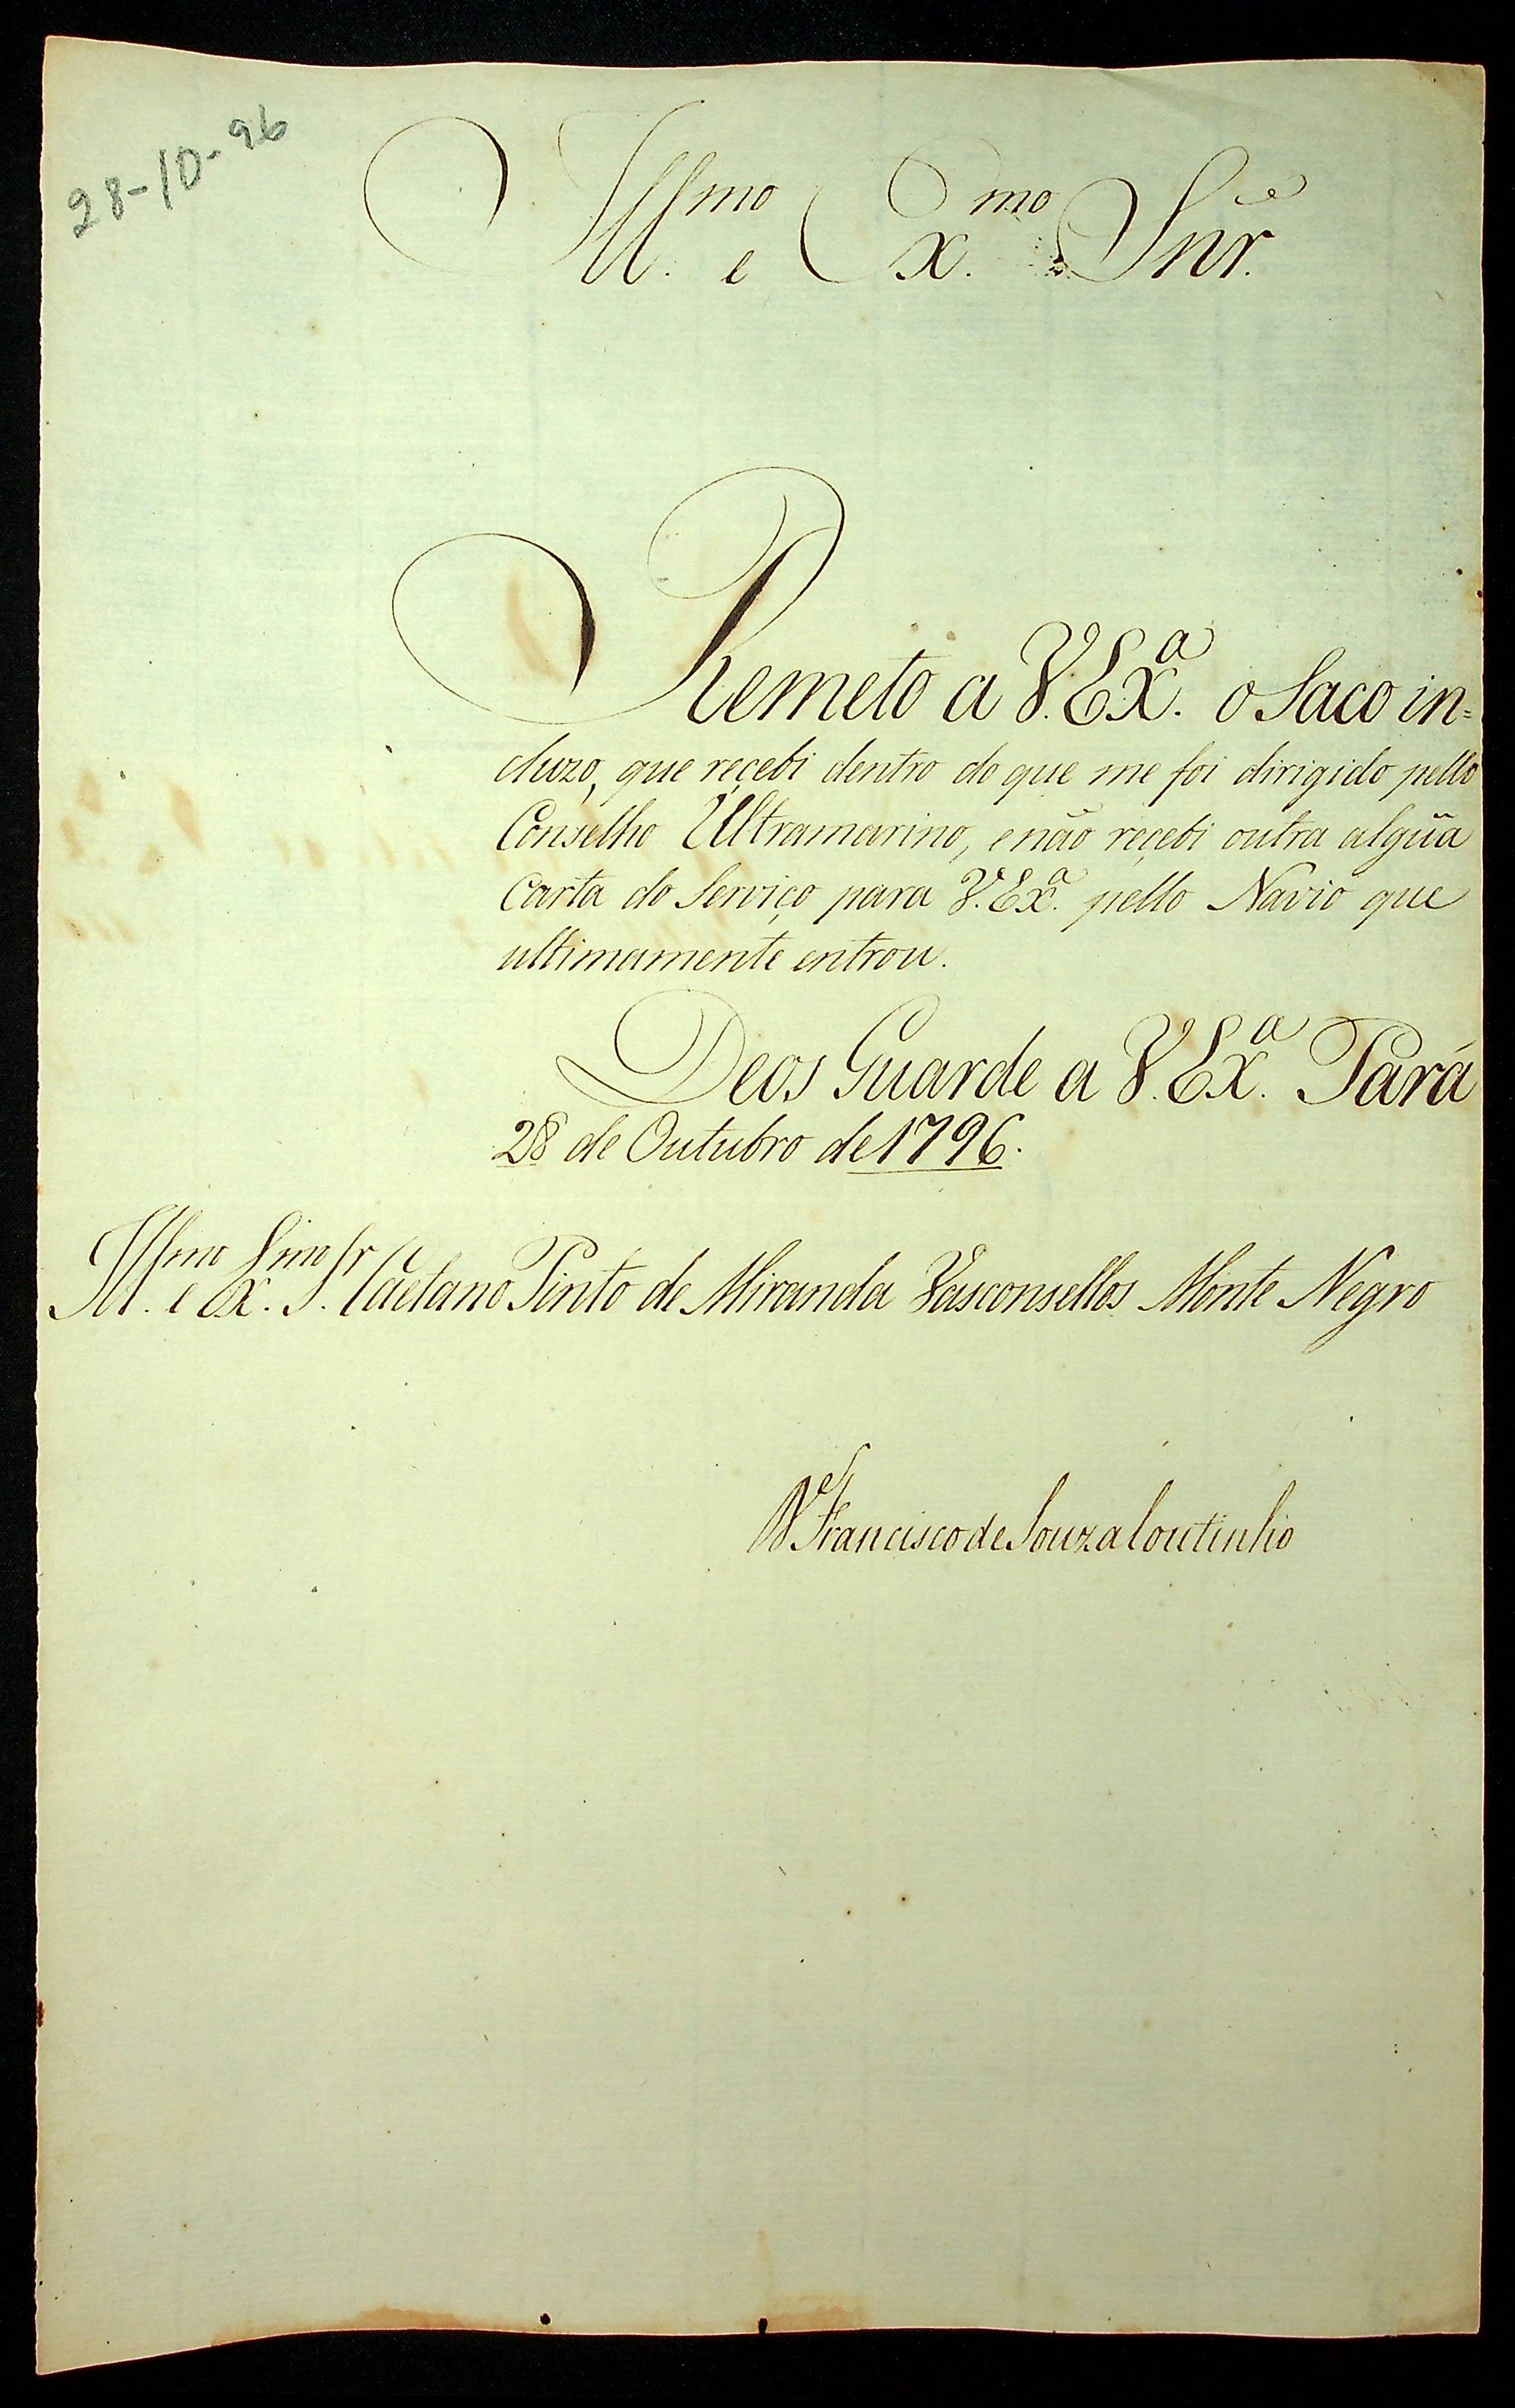 28-10-96
Ill.mo e Ex.mo Snr.
Remeto a V. Ex.ª o Saco in=
cluzo, que reçebi dentro do que me foi dirigido pello
Conselho Ultramarino, e não reçebi outra algũa
Carta do Serviço para V. Ex.ª pello Navio que
ultimamente entrou.
Deos Guarde a V. Ex.ª Pará
28 de Outubro de 1796.
Ill.mo e Ex.mo Sr. Caetano Pinto de Miranda Vasconsellos Monte Negro
Francisco de Souza Coutinho